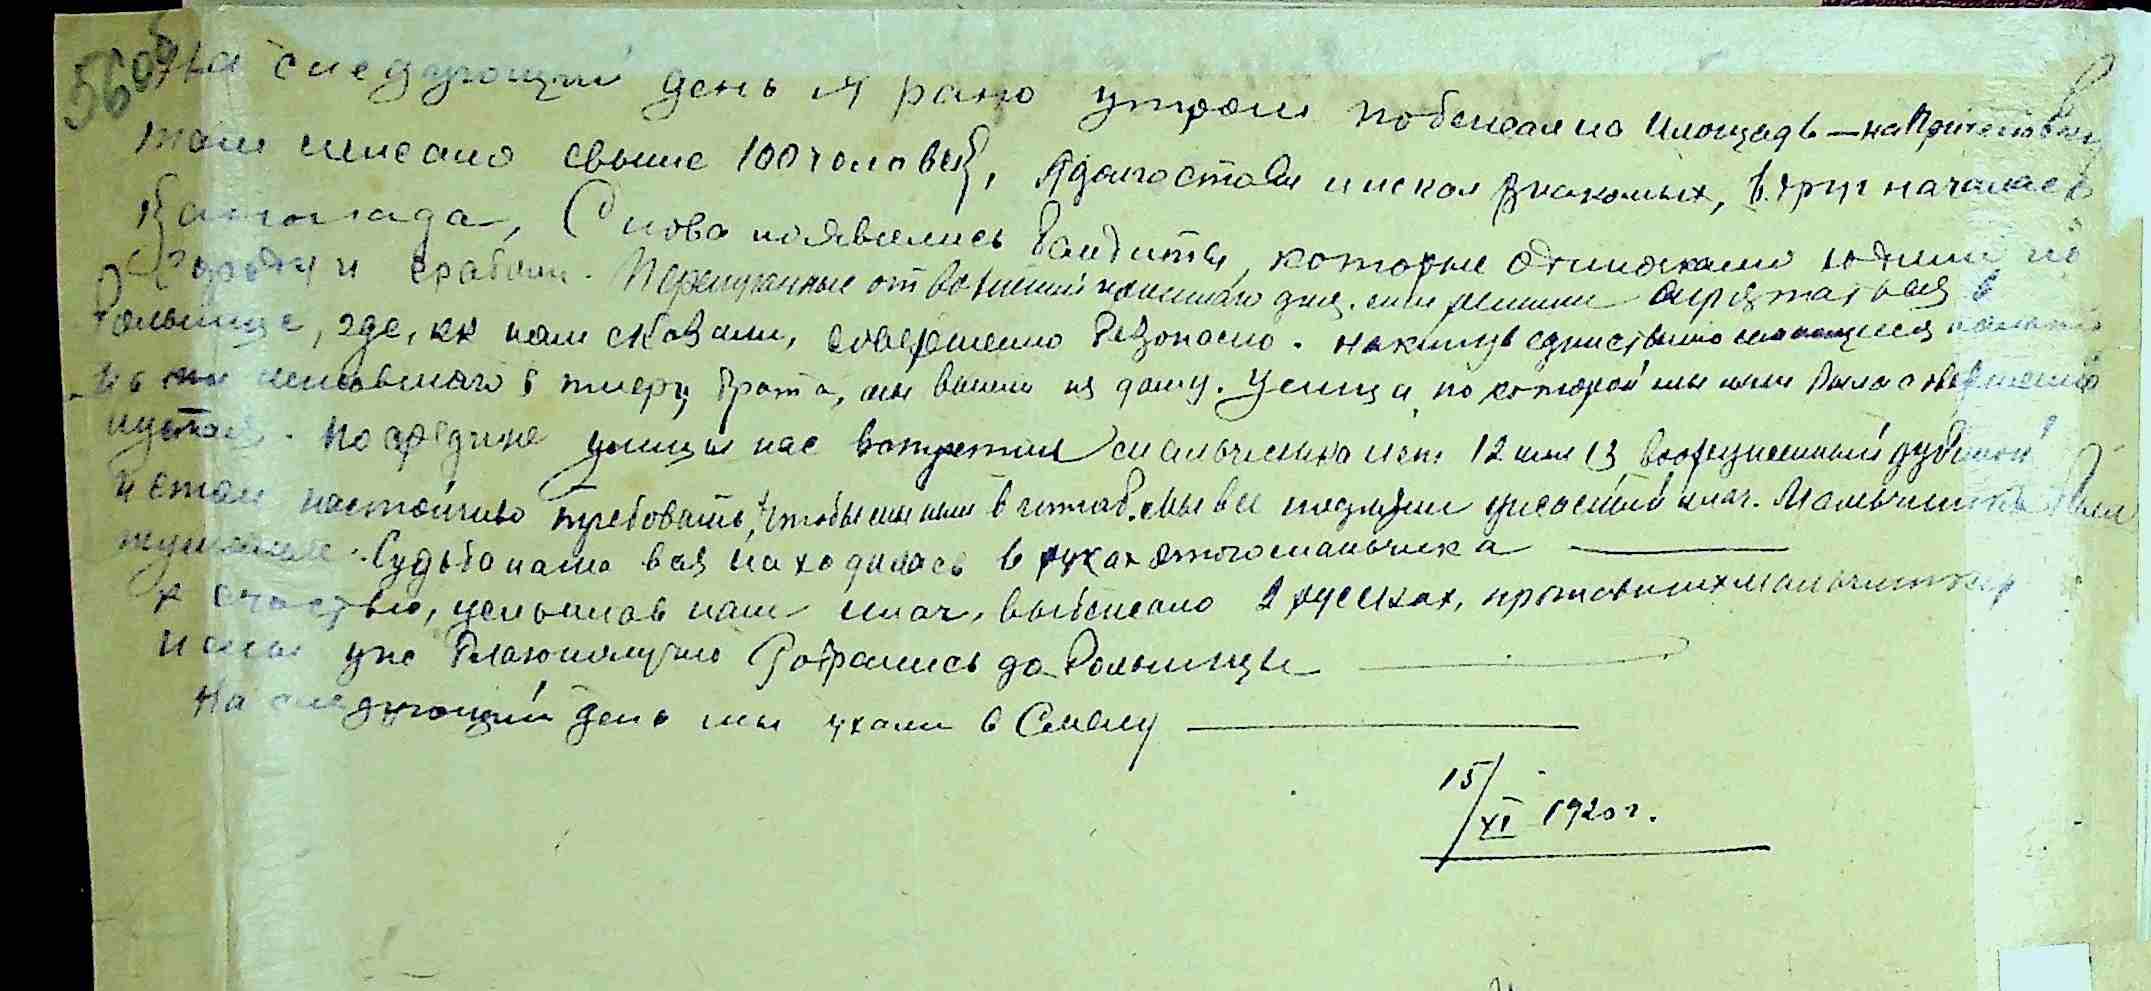 56 об
На следующий день я рано утром побежал на площадь — на
там лежало свыше 100 человек, Я долго стоял и искал знакомых, вдруг началась
канонада, Снова появились бандиты, которые одиночками ходили по
городу и грабили. Перепуганные от мы решили спрятаться в
больнице, где, кк нам сказали, совершенно безопасно. накинув единственно
брата, мы вышли из дому. Улица, по которой мы шли была совершенно
пустая. Посредине улицы нас встретил мальчишка лет 12 или 13 вооруженный дубиной
и стал настойчиво требовать, чтобы мы шли в штаб. Мы все подняли ужасный плач. Мальчишка был
Судьба наша вся находилась в руках этого мальчика —
К счастью, услышав наш плач, выбежало 2 русских, мальчишку
и мы уже благополучно добрались до больницы —
На следующий день мы ухали в Смелу —
15/XI 1920 г.